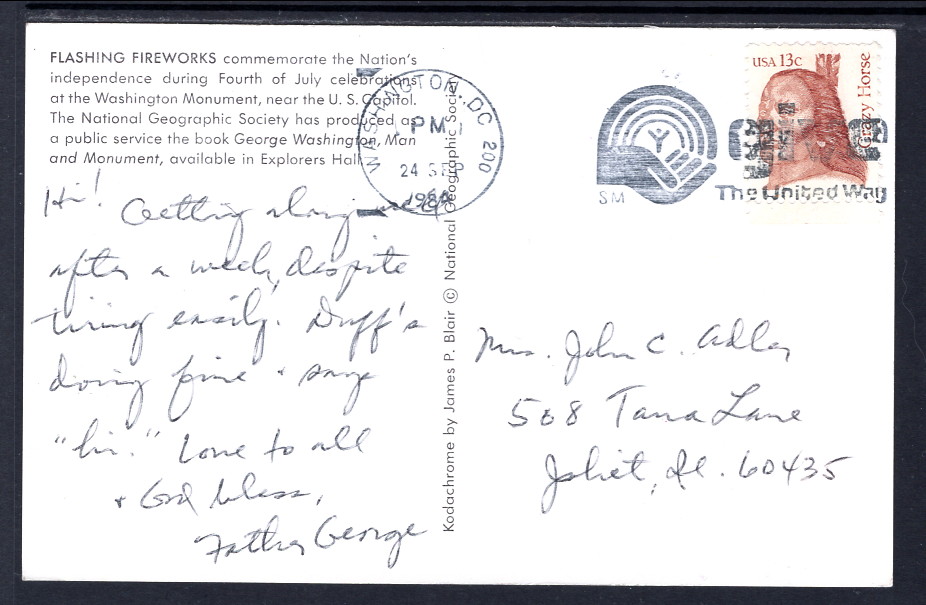 FLASHING FIREWORKS commemorate the Nation's
independence during Fourth of July celebrations
at the Washington Monument, near the U. S. Capitol.
The National Geographic Society has produced as
a public service the book George Washington, Man
and Monument, available in Explorers Hall.
Hi! Getting along well
after a week, despite
tiring easily. Duff's
doing fine + says
"hi." Love to all
+ God bless,
Father George
Kodachrome by James P. Blair © National Geographic Society
WASHINGTON, DC 200
PM
24 SEP
USA 13c
Crazy Horse
SM
The United Way
Mrs. John C. Adler
508 Tana Lane
Joliet, Il. 60435